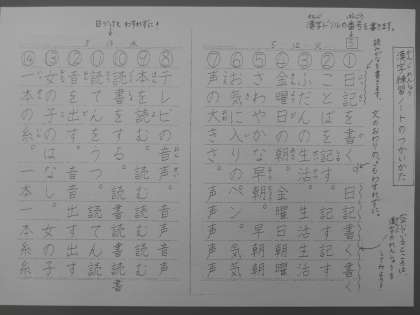 漢字練習ノートのつかいかた
漢字ドリルの番号を書きます。
読みがなも書きます。
文のおわりの。もわすれずに。
日づけも わすれずに!
① 日記を書く。 日記 書く 書く
② ことばを記す。 記す 記す
③ ふだんの生活。 生活 生活
④ 金曜日の朝。 金曜日 朝 曜
⑤ さわやかな早朝。 早朝 早朝
⑥ お気に入りのペン。 気 気
⑦ 声の大きさ。 声 声 声
⑧ テレビの音声。 音声 音声
⑨ 本を読む。 読む 読む 読む
⑩ 読書をする。 読書 読書 読書
⑪ 読てんをうつ。 読てん 読
⑫ 音を出す。 音 音 出す 出
⑬ 女の子のはなし。 女の子
⑭ 一本の糸。 一本 本 糸 糸